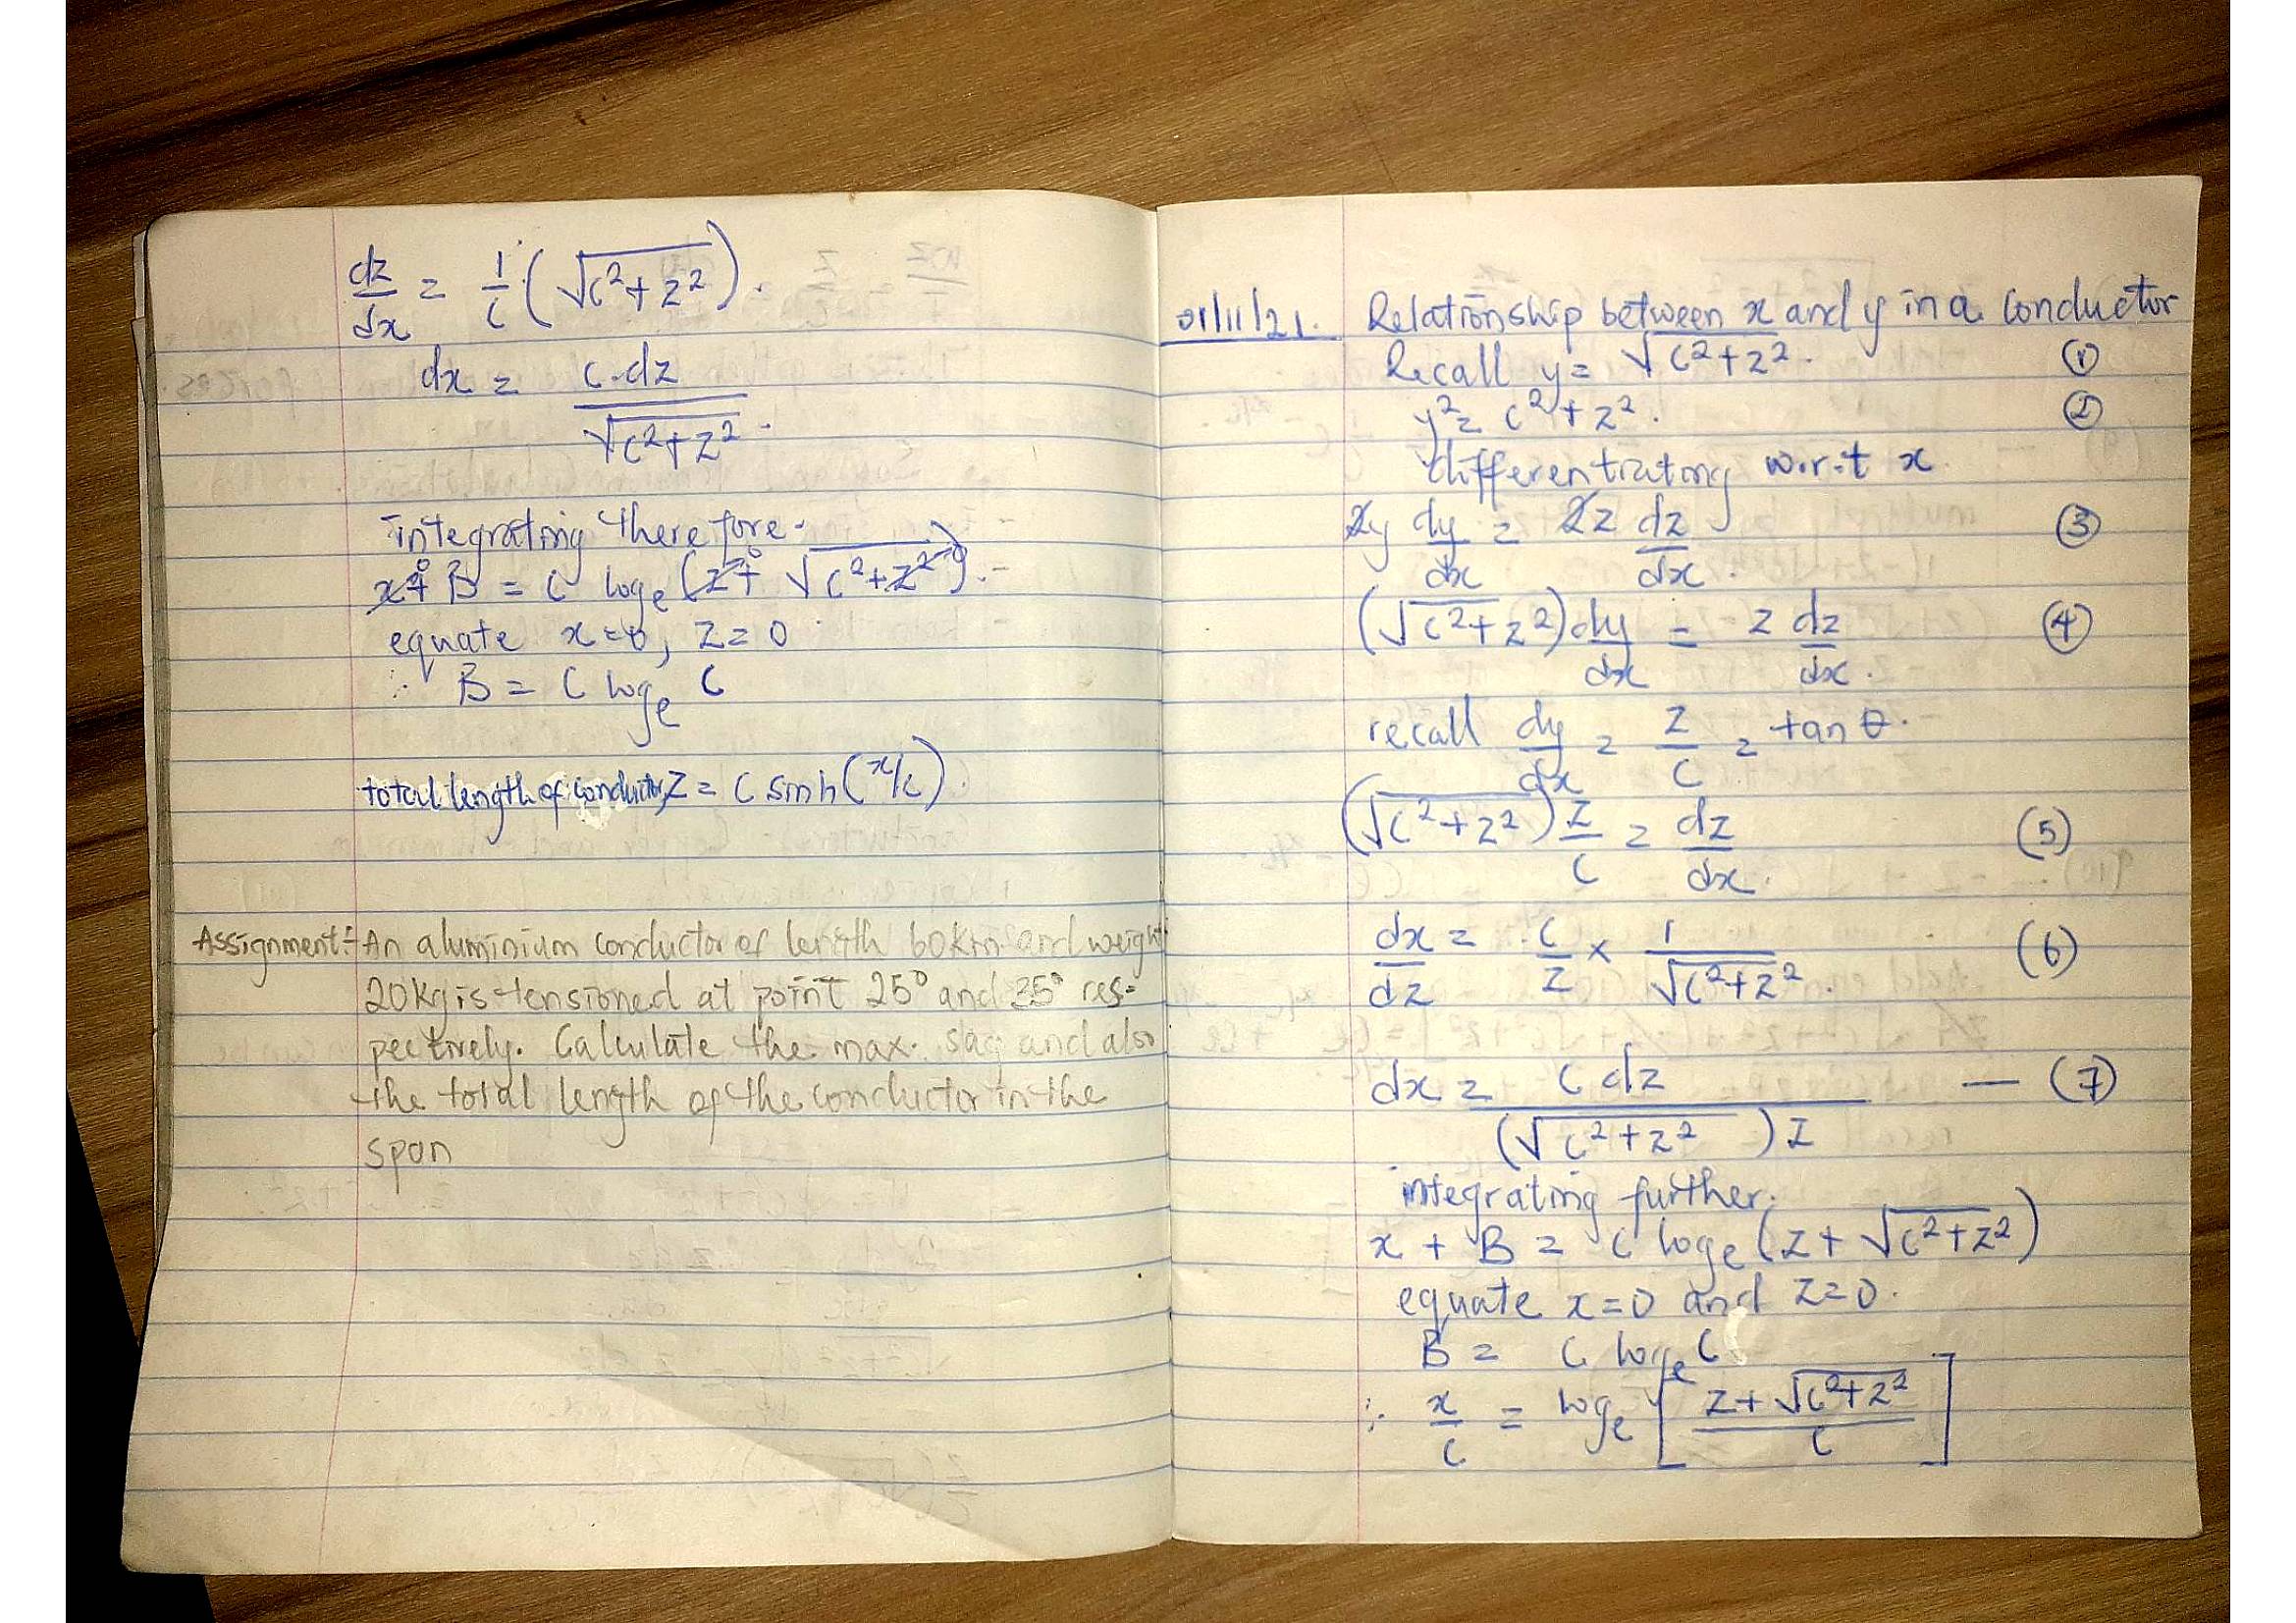 dz/dx = 1/c (√c²+z²).
dx = c.dz/√c²+z².
integrating therefore.
x+B = C logₑ (z+ √c²+z²).
equate x=0, z=0
∴ B = C logₑ C
total length of conductor, Z = C sinh (x/c).
Assignment:- An aluminium conductor of length 60km and weight
20kg is tensioned at point 25° and 35° res-
pectively. Calculate the max. sag and also
the total length of the conductor in the
span
01/11/21. Relationship between x and y in a conductor
Recall y = √c²+z². ①
y² = c²+z². ②
differentiating w.r.t x
2y dy/dx = 2z dz/dx. ③
(√c²+z²) dy/dx = z dz/dx. ④
recall dy/dx = z/c = tan θ.
(√c²+z²) z/c = dz/dx. (5)
dx/dz = c/z × 1/√c²+z². (6)
dx = c dz/(√c²+z²) z — (7)
integrating further.
x + B = C logₑ (z+ √c²+z²)
equate x=0 and z=0.
B = C logₑ C
∴ x/c = logₑ [z+ √c²+z²/c]